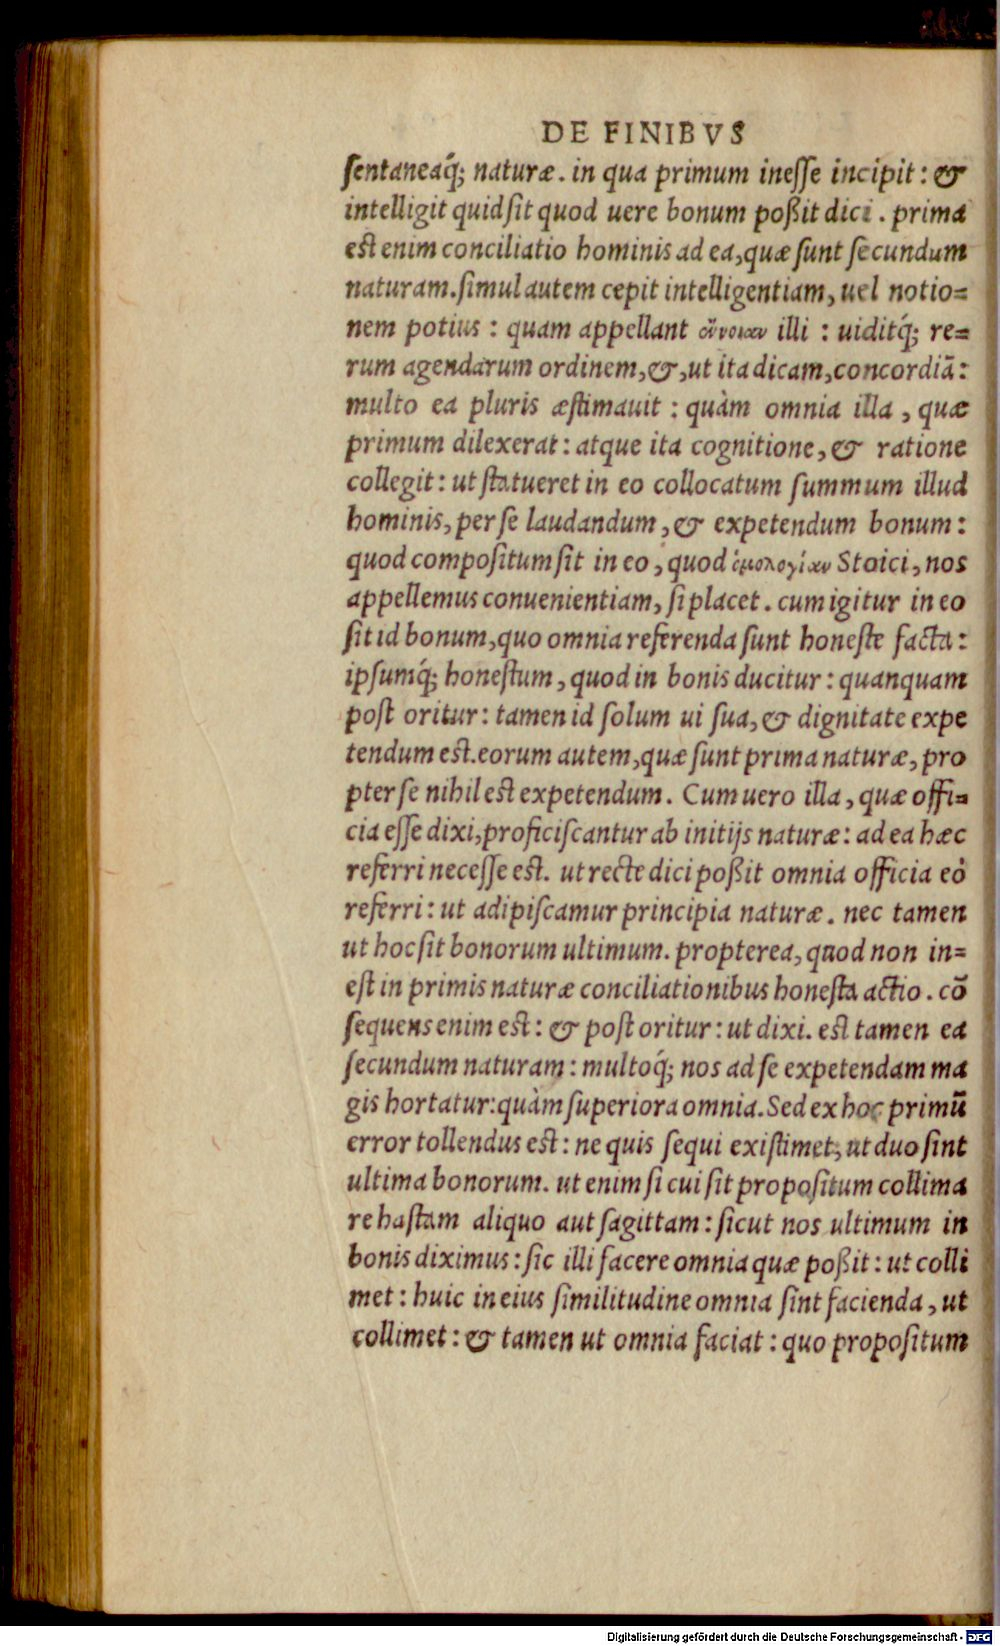 DE FINIBVS
ſentaneaq́; naturæ. in qua primum ineſſe incipit: &
intelligit quid ſit quod uere bonum poßit dici. prima
est enim conciliatio hominis ad ea, quæ ſunt ſecundum
naturam. ſimul autem cepit intelligentiam, uel notio=
nem potius: quam appellant ἔννοιαν illi: uiditq́; re=
rum agendarum ordinem, &, ut ita dicam, concordiã:
multo ea pluris æſtimauit: quàm omnia illa, quæ
primum dilexerat: atque ita cognitione, & ratione
collegit: ut ſtatueret in eo collocatum ſummum illud
hominis, per ſe laudandum, & expetendum bonum:
quod compoſitum ſit in eo, quod ὁμολογίαν Stoici, nos
appellemus conuenientiam, ſi placet. cum igitur in eo
ſit id bonum, quo omnia referenda ſunt honeſte facta:
ipſumq́; honeſtum, quod in bonis ducitur: quanquam
poſt oritur: tamen id ſolum ui ſua, & dignitate expe
tendum est. eorum autem, quæ ſunt prima naturæ, pro
pter ſe nihil est expetendum. Cum uero illa, quæ offi=
cia eſſe dixi, proficiſcantur ab initijs naturæ: ad ea hæc
referri neceſſe est. ut recte dici poßit omnia officia eò
referri: ut adipiſcamur principia naturæ. nec tamen
ut hoc ſit bonorum ultimum. propterea, quod non in=
eſt in primis naturæ conciliationibus honeſta actio. cõ
ſequens enim est: & poſt oritur: ut dixi. est tamen ea
ſecundum naturam: multoq́; nos ad ſe expetendam ma
gis hortatur: quàm ſuperiora omnia. Sed ex hoc primũ
error tollendus est: ne quis ſequi exiſtimet, ut duo ſint
ultima bonorum. ut enim ſi cui ſit propoſitum collima
re haſtam aliquo aut ſagittam: ſicut nos ultimum in
bonis diximus: ſic illi facere omnia quæ poßit: ut colli
met: huic in eius ſimilitudine omnia ſint facienda, ut
collimet: & tamen ut omnia faciat: quo propoſitum
Digitalisierung gefördert durch die Deutsche Forschungsgemeinschaft - DFG